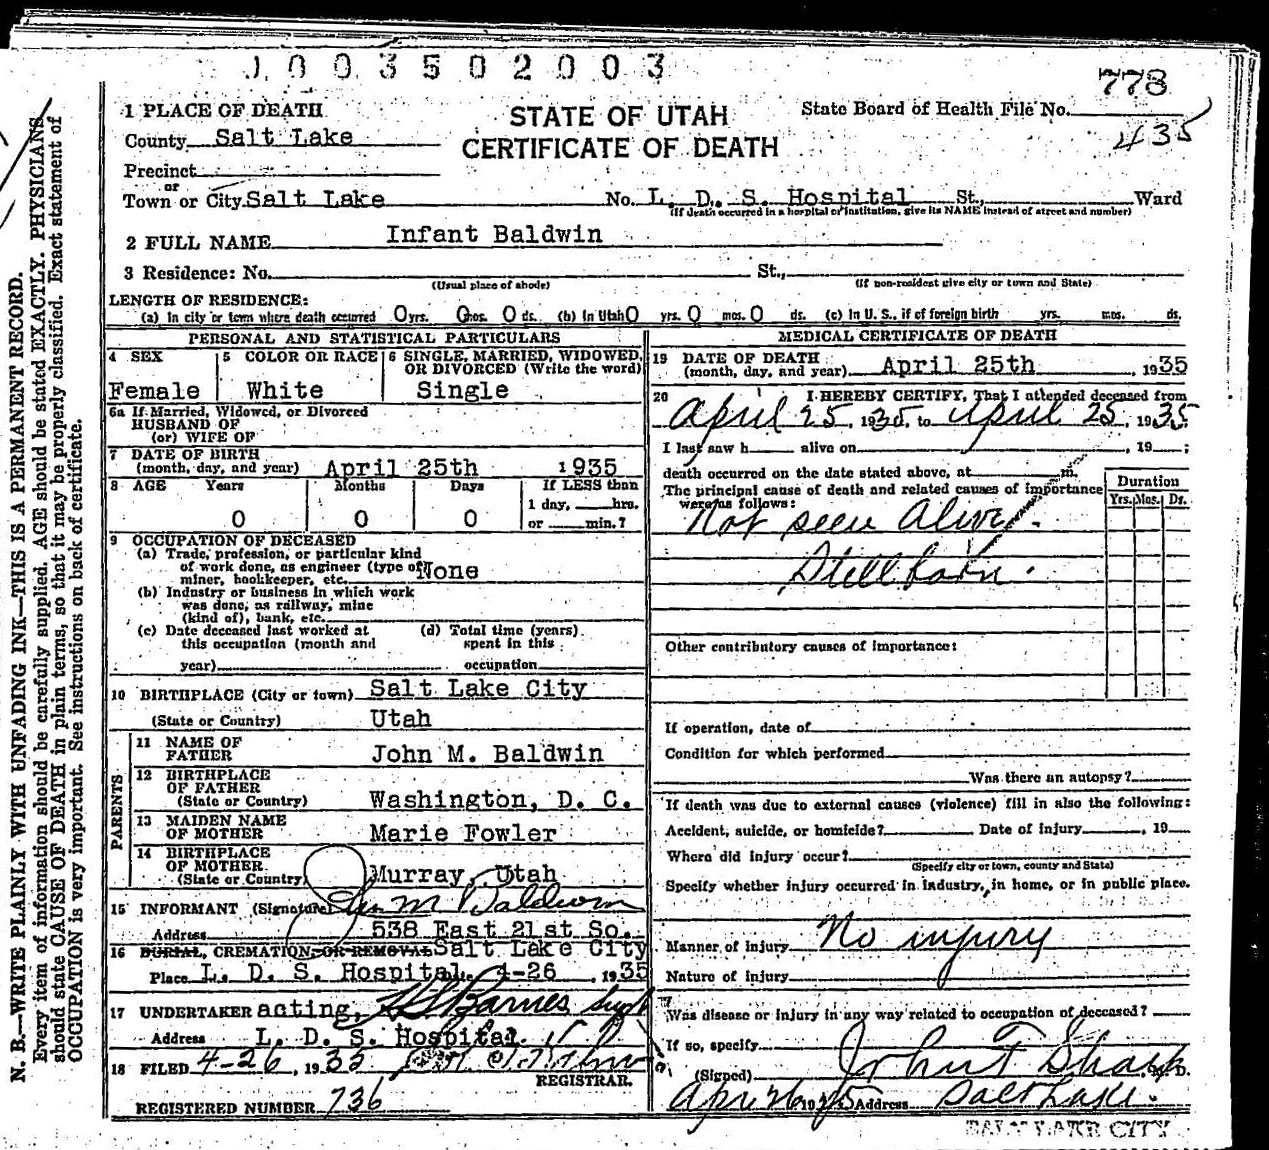 1003502003
778
1 PLACE OF DEATH
STATE OF UTAH
State Board of Health File No.
435
County Salt Lake
CERTIFICATE OF DEATH
Precinct
or
Town or City Salt Lake No. L. D. S. Hospital St., Ward
(If death occurred in a hospital or institution, give its NAME instead of street and number)
2 FULL NAME Infant Baldwin
3 Residence: No. St.,
(Usual place of abode) (If non-resident give city or town and State)
LENGTH OF RESIDENCE:
(a) In city or town where death occurred 0 yrs. 0 mos. 0 ds. (b) In Utah 0 yrs. 0 mos. 0 ds. (c) In U. S., if of foreign birth yrs. mos. ds.
PERSONAL AND STATISTICAL PARTICULARS
4 SEX 5 COLOR OR RACE 6 SINGLE, MARRIED, WIDOWED, OR DIVORCED (Write the word)
Female White Single
6a If Married, Widowed, or Divorced
HUSBAND OF
(or) WIFE OF
7 DATE OF BIRTH
(month, day, and year) April 25th 1935
8 AGE Years Months Days If LESS than
1 day, hrs.
0 0 0 or min.?
9 OCCUPATION OF DECEASED
(a) Trade, profession, or particular kind
of work done, as engineer (type of
miner, bookkeeper, etc. None
(b) Industry or business in which work
was done, as railway, mine
(kind of), bank, etc.
(c) Date deceased last worked at (d) Total time (years)
this occupation (month and spent in this
year) occupation
10 BIRTHPLACE (City or town) Salt Lake City
(State or Country) Utah
PARENTS
11 NAME OF
FATHER John M. Baldwin
12 BIRTHPLACE
OF FATHER
(State or Country) Washington, D. C.
13 MAIDEN NAME
OF MOTHER Marie Fowler
14 BIRTHPLACE
OF MOTHER
(State or Country) Murray, Utah
15 INFORMANT (Signature) M Baldwin
Address 538 East 21st So.
16 BURIAL, CREMATION, OR REMOVAL Salt Lake City
Place L. D. S. Hospital 4-26, 1935
17 UNDERTAKER acting, Barnes Supt
Address L. D. S. Hospital
18 FILED 4-26, 1935
REGISTRAR.
REGISTERED NUMBER 736
MEDICAL CERTIFICATE OF DEATH
19 DATE OF DEATH
(month, day, and year) April 25th, 1935
20 I HEREBY CERTIFY, That I attended deceased from
April 25, 1935, to April 25, 1935
I last saw h alive on , 19 ;
death occurred on the date stated above, at m.
The principal cause of death and related causes of importance
were as follows:
Duration
Yrs. Mos. Ds.
Not seen Alive.
Stillborn.
Other contributory causes of importance:
If operation, date of
Condition for which performed
Was there an autopsy?
If death was due to external causes (violence) fill in also the following:
Accident, suicide, or homicide? Date of injury , 19
Where did injury occur?
(Specify city or town, county and State)
Specify whether injury occurred in industry, in home, or in public place.
Manner of injury No injury
Nature of injury
Was disease or injury in any way related to occupation of deceased?
If so, specify
(Signed) John F Sharp M. D.
Apr 26 1935 Address Salt Lake.
SALT LAKE CITY
N. B.—WRITE PLAINLY WITH UNFADING INK—THIS IS A PERMANENT RECORD.
Every item of information should be carefully supplied. AGE should be stated EXACTLY. PHYSICIANS
should state CAUSE OF DEATH in plain terms, so that it may be properly classified. Exact statement of
OCCUPATION is very important. See instructions on back of certificate.